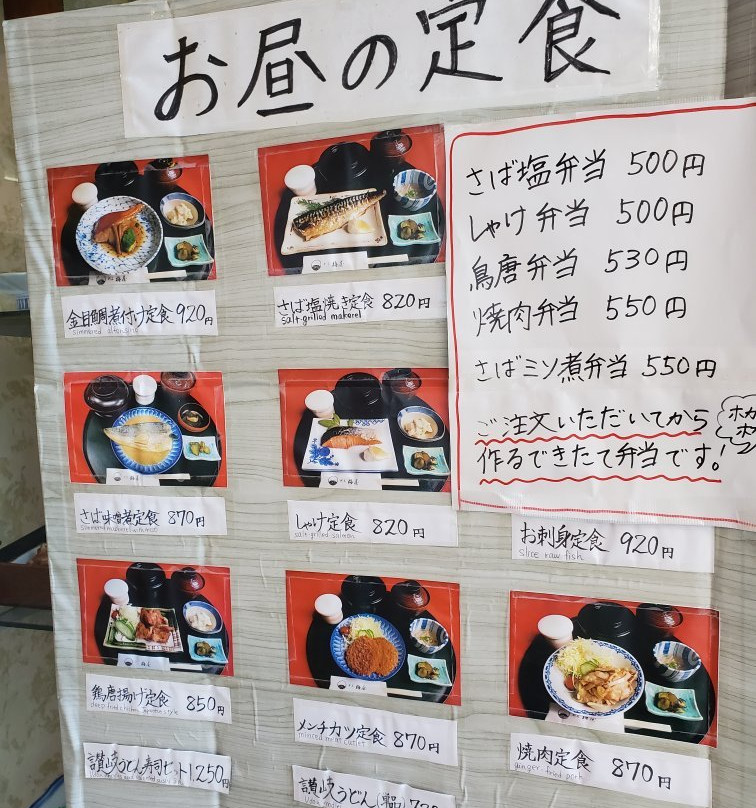 お昼の定食
金目鯛煮付け定食 920円
simmered alfonsino
さば塩焼き定食 820円
salt-grilled makerel
さば塩弁当 500円
しゃけ弁当 500円
鳥唐弁当 530円
焼肉弁当 550円
さばミソ煮弁当 550円
ご注文いただいてから
作るできたて弁当です!
ホカ
ホカ
さば味噌煮定食 870円
しゃけ定食 820円
salt-grilled salmon
お刺身定食 920円
slice raw fish
鶏唐揚げ定食 850円
deep fried chicken Japanese style
メンチカツ定食 870円
minced meat cutlet
焼肉定食 870円
ginger fried pork
讃岐うどん寿司セット 1,250円
讃岐うどん(単品)